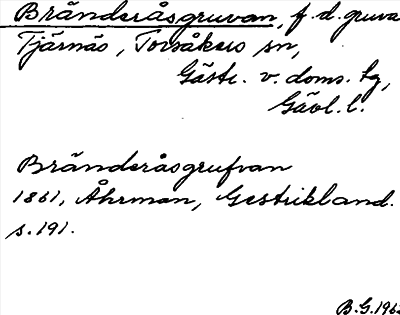 Bränderåsgruvan, f.d. gruva
Tjärnäs, Torsåkers sn,
Gästr. v. doms. tg,
Gävl. l.
Bränderåsgrufvan
1861, Åhrman, Gestrikland.
s. 191.
B.G. 1963